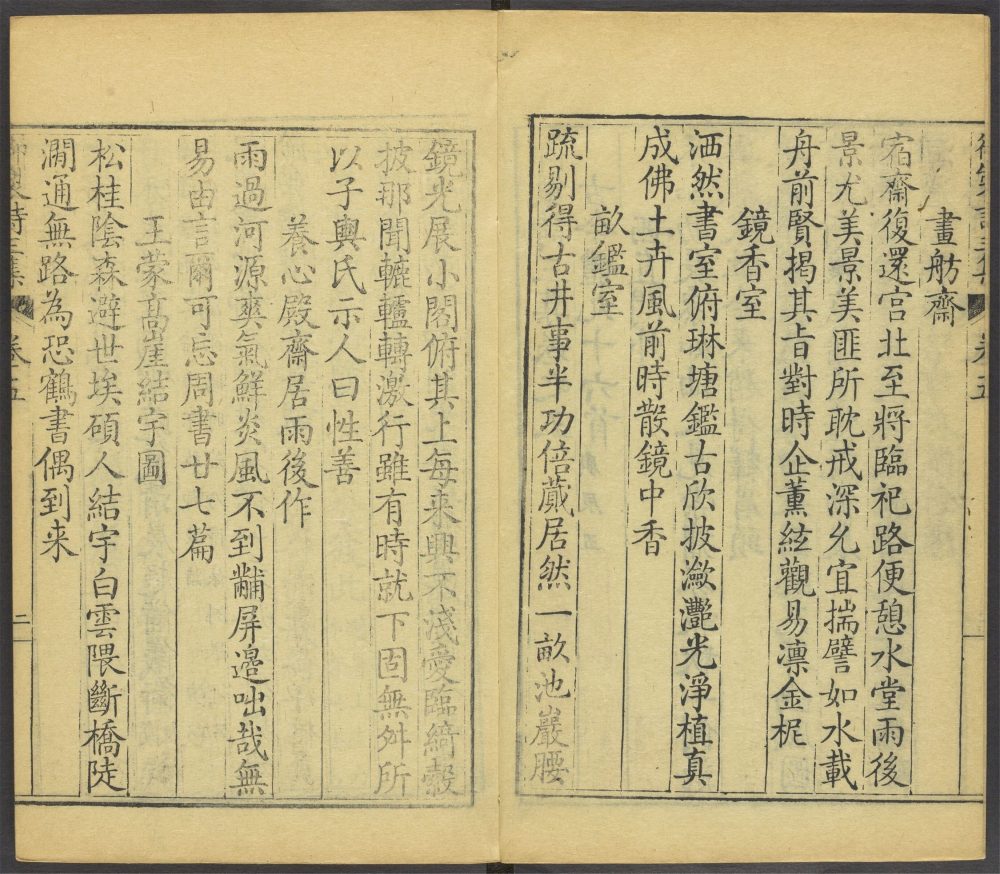 畫舫齋
宿齋復還宮北至將臨祀路便憩水堂雨後
景尤美景美匪所耽戒深允宜揣譬如水載
舟前賢揭其旨對時企薰絃觀易凛金柅
鏡香室
洒然書室俯琳塘鑑古欣披瀲灩光淨植真
成佛土卉風前時散鏡中香
畝鑑室
疏剔得古井事半功倍蕆居然一畝池巖腰
鏡光展小閣俯其上每来興不淺愛臨綺縠
披那聞轆轤轉激行雖有時就下固無舛所
以子輿氏示人曰性善
養心殿齋居雨後作
雨過河源爽氣鮮炎風不到黼屏邊咄哉無
易由言爾可忘周書廿七篇
王蒙髙崖結宇圖
松桂陰森避世埃碩人結宇白雲隈斷橋陡
澗通無路為恐鶴書偶到来
卷五
二